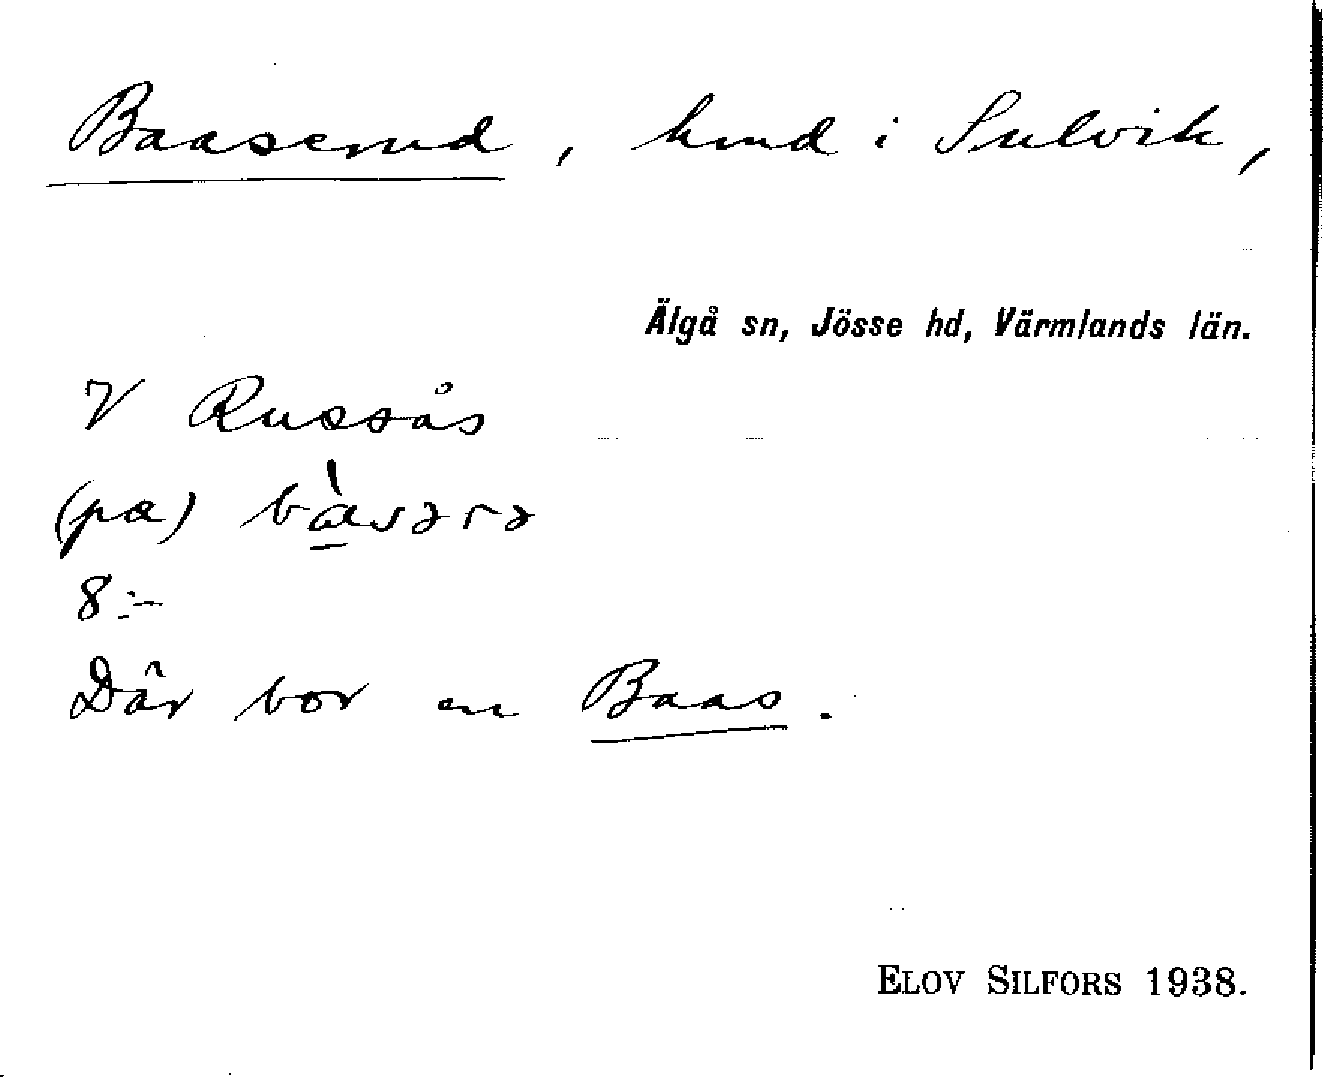 Baaserud, hmd i Sulvik,
Älgå sn, Jösse hd, Värmlands län.
V Russås
(pa)
8:-
Där bor en Baas.
ELOV SILFORS 1938.